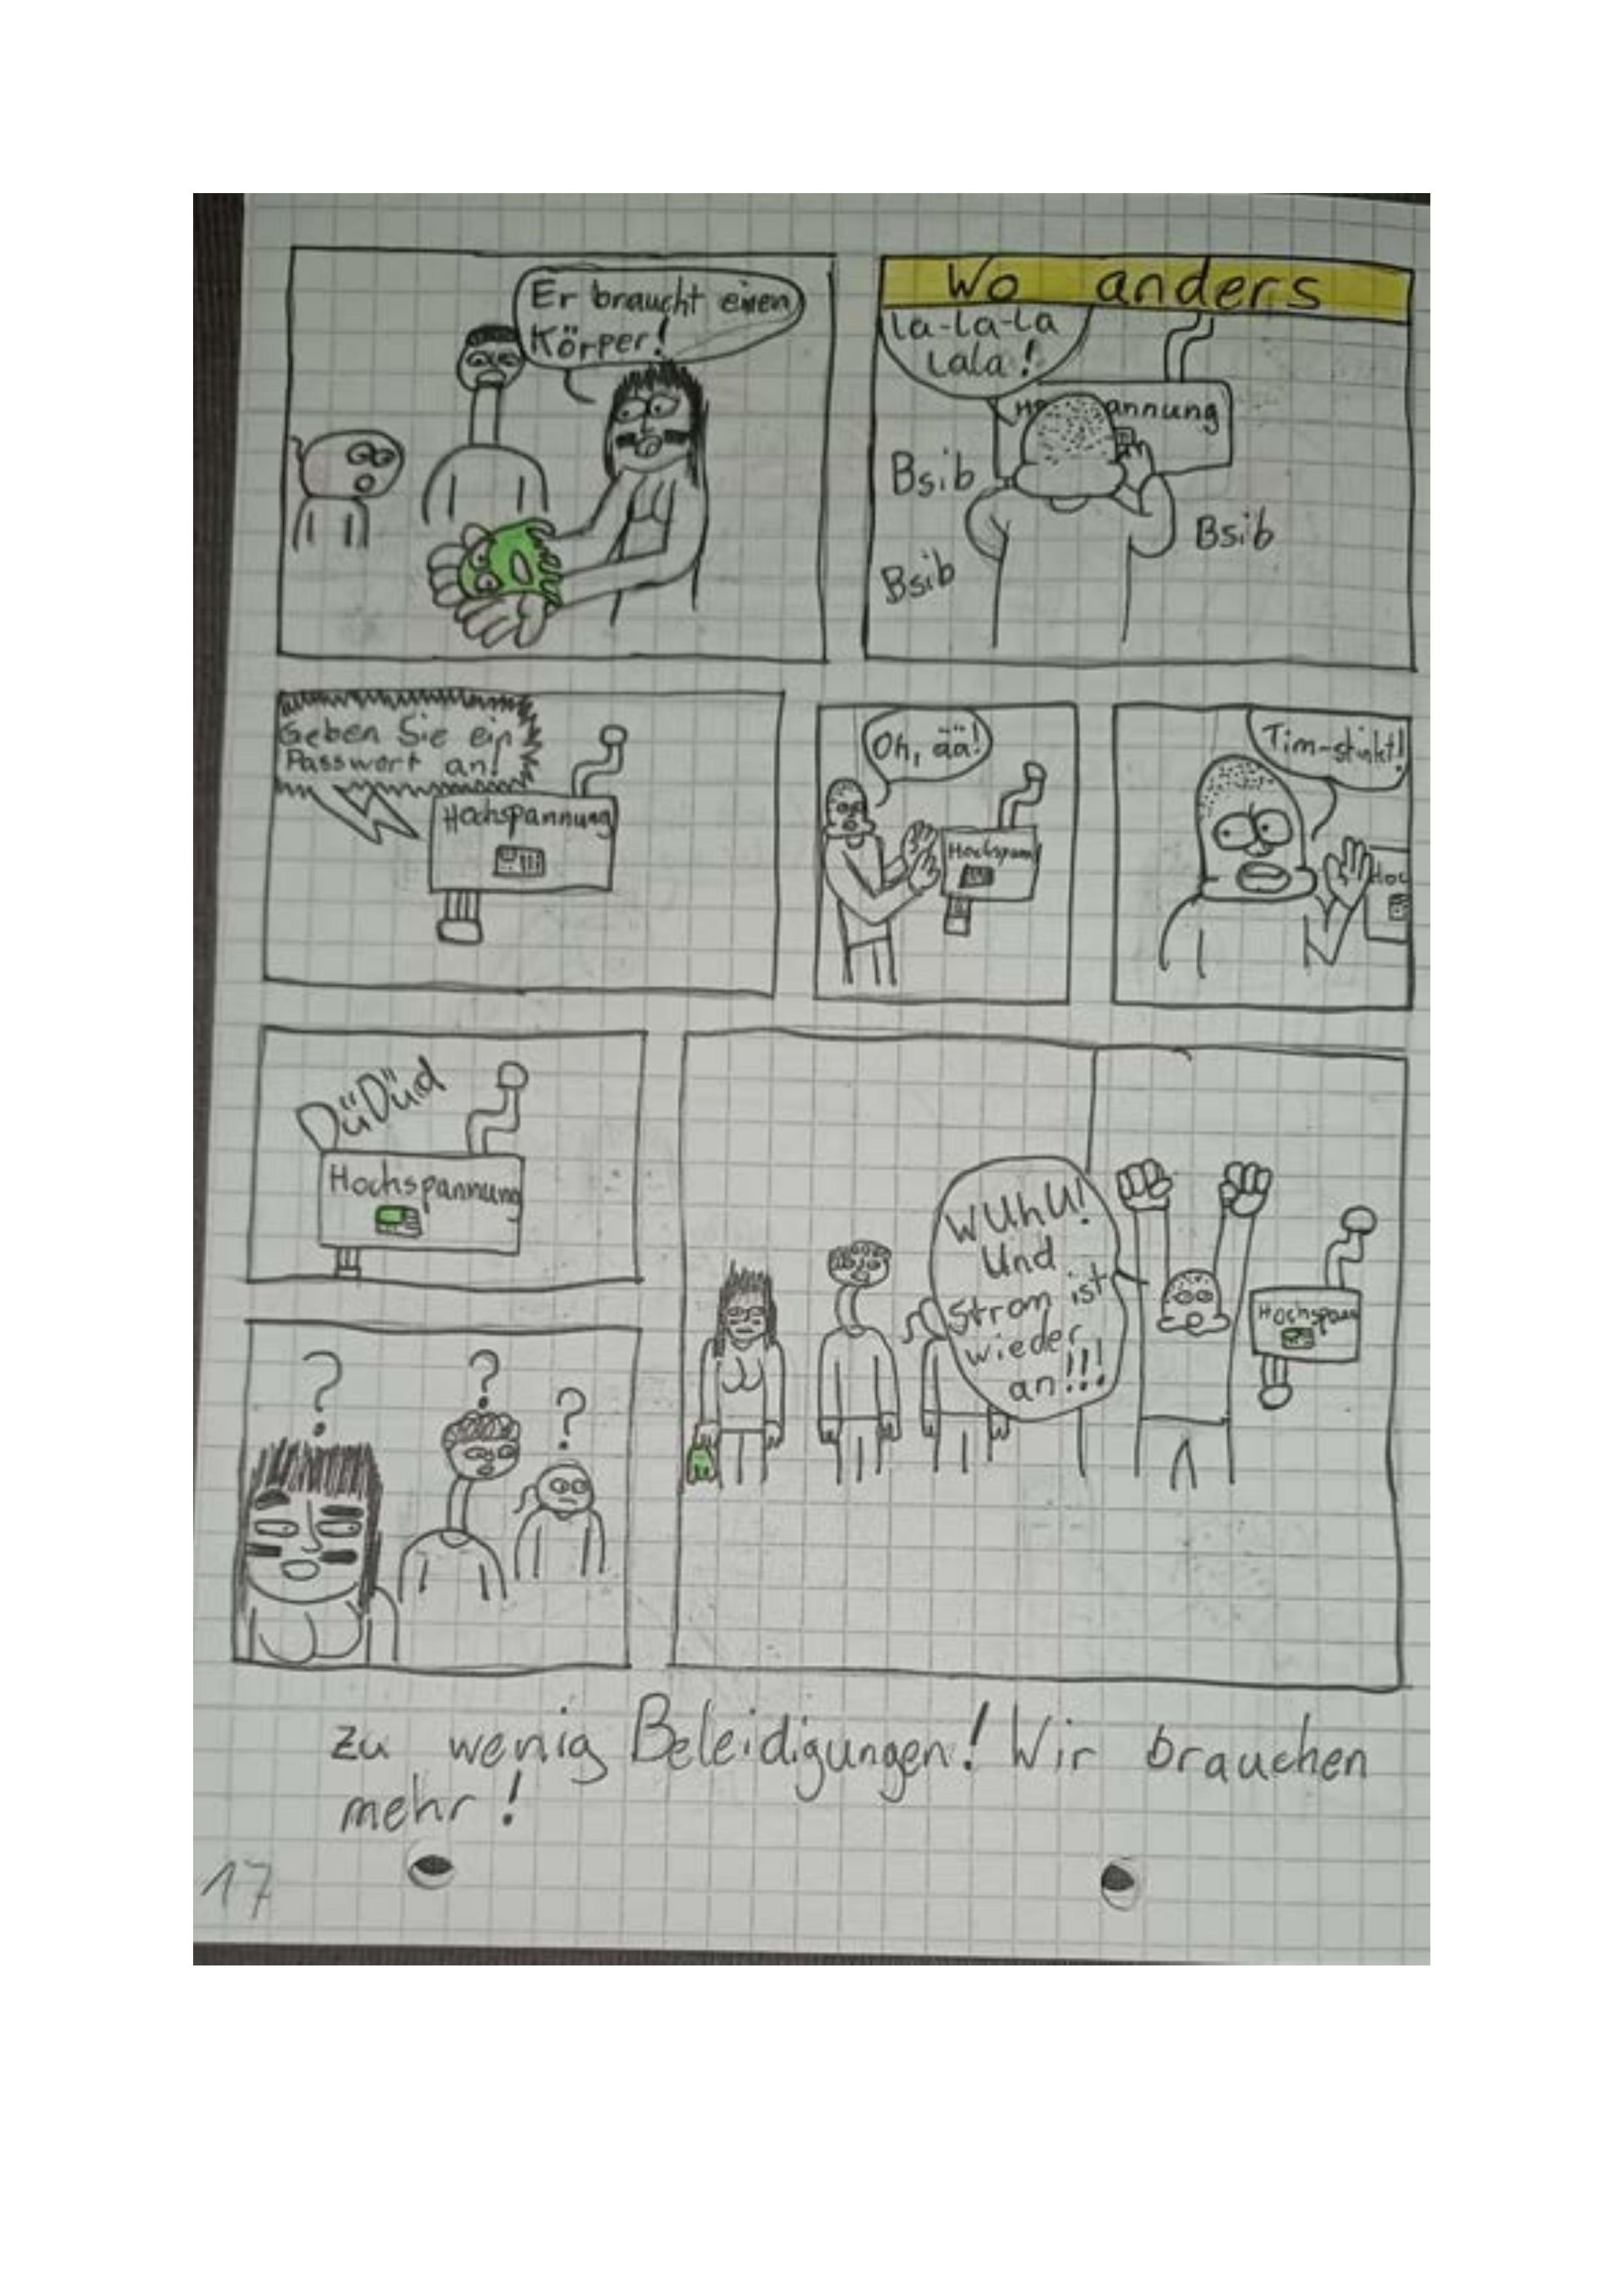 Er braucht einen
Körper!
Wo anders
La-La-La
Lala!
Ho annung
Bsib
Bsib
Bsib
Geben Sie ein
Passwort an!
Hochspannung
Oh, ää!
Hochspann
Tim-stinkt!
Hoc
DüDüd
Hochspannung
WUhU!
Und
Strom ist
wieder
an!!!
Hochspann
? ? ?
zu wenig Beleidigungen! Wir brauchen
mehr!
17